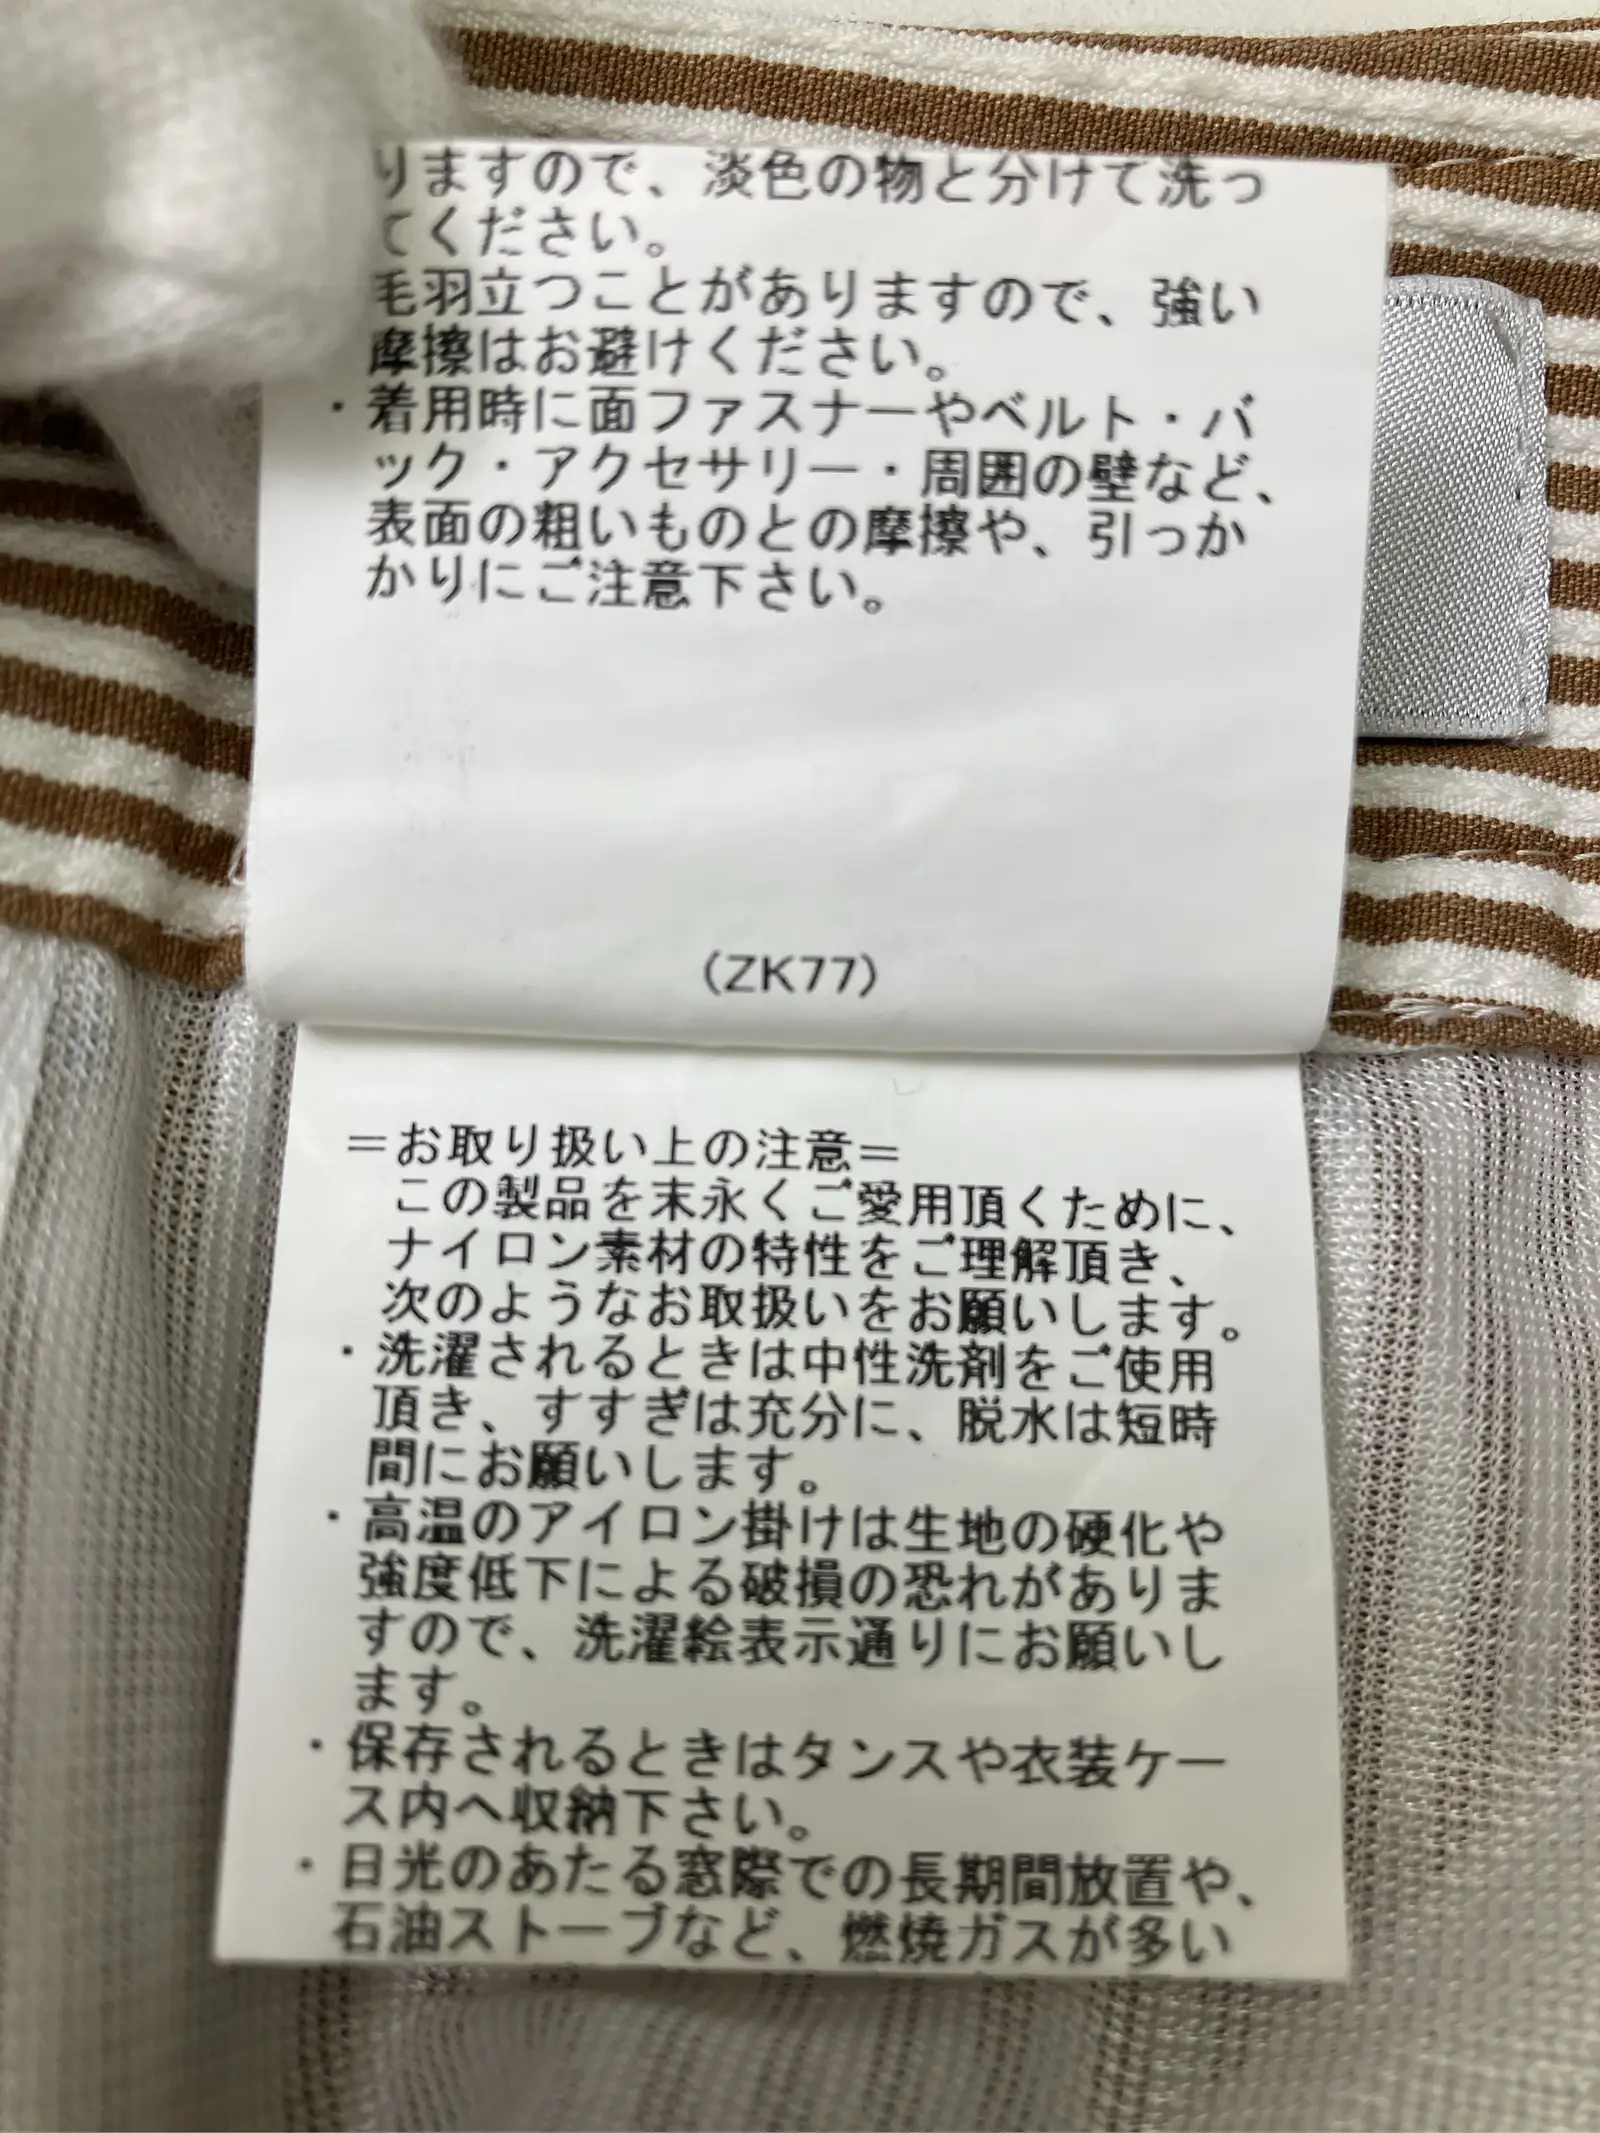 りますので、淡色の物と分けて洗っ
てください。
毛羽立つことがありますので、強い
摩擦はお避けください。
・着用時に面ファスナーやベルト・バ
ック・アクセサリー・周囲の壁など、
表面の粗いものとの摩擦や、引っか
かりにご注意下さい。
(ZK77)
=お取り扱い上の注意=
この製品を末永くご愛用頂くために、
ナイロン素材の特性をご理解頂き、
次のようなお取扱いをお願いします。
・洗濯されるときは中性洗剤をご使用
頂き、すすぎは充分に、脱水は短時
間にお願いします。
・高温のアイロン掛けは生地の硬化や
強度低下による破損の恐れがありま
すので、洗濯絵表示通りにお願いし
ます。
・保存されるときはタンスや衣装ケー
ス内へ収納下さい。
・日光のあたる窓際での長期間放置や、
石油ストーブなど、燃焼ガスが多い